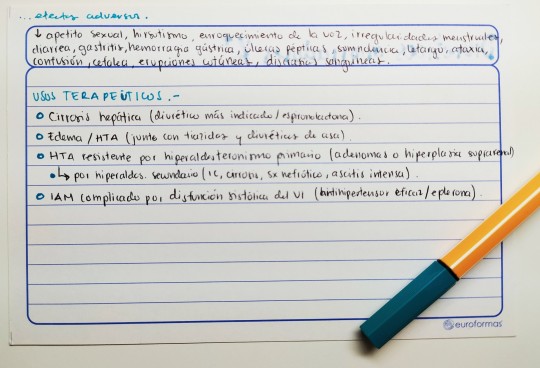 ... efectos adversos.
↓ apetito sexual, hirsutismo, enroquecimiento de la voz, irregularidades menstruales,
diarrea, gastritis, hemorragia gástrica, úlceras pépticas, somnolencia, letargo, ataxia,
confusión, cefalea, erupciones cutáneas, discrasias sanguíneas.
USOS TERAPEÚTICOS.-
Cirrosis hepática (diurético más indicado / espironolactona).
Edema / HTA (junto con tiazidas y diuréticos de asa).
HTA resistente por hiperaldosteronismo primario (adenomas o hiperplasia suprarrenal)
↳ por hiperaldos. secundario (IC, cirrosis, sx nefrótico, ascitis intensa).
IAM complicado por disfunción sistólica del VI (antihipertensor eficaz / eplerona).
euroformas